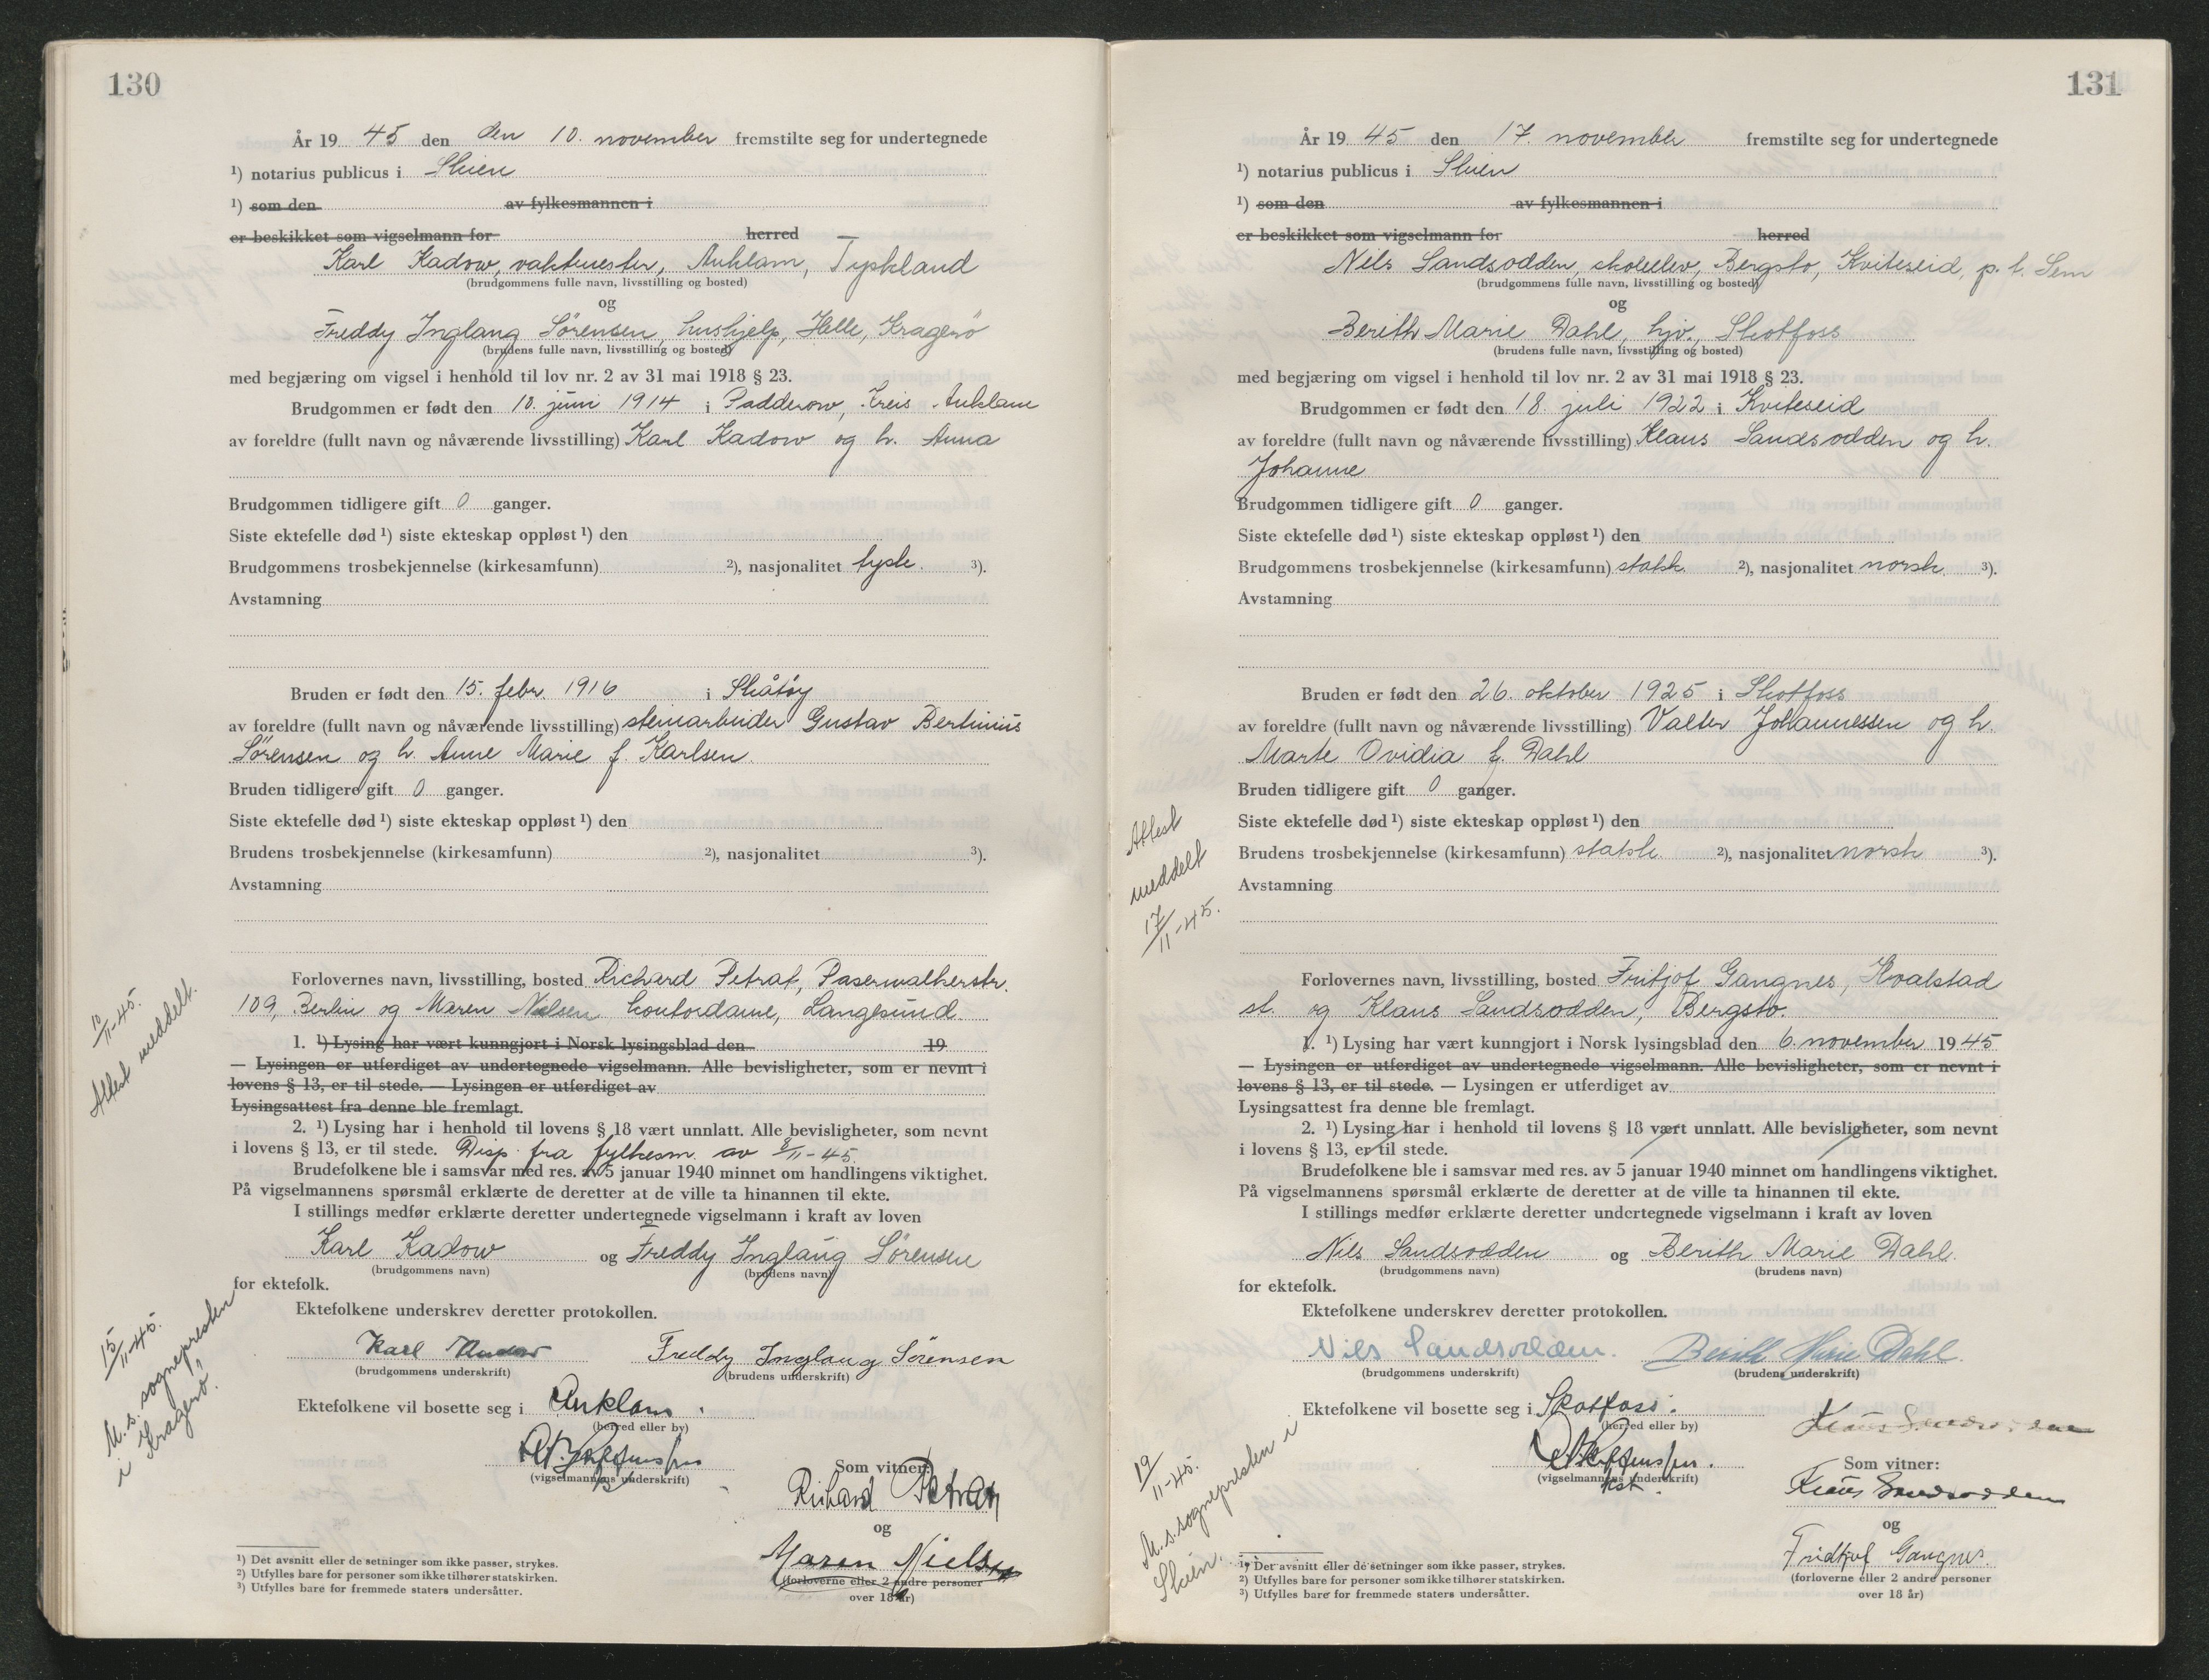 130
År 19 45 den den 10. november fremstilte seg for undertegnede
¹) notarius publicus i Skien
¹) som den av fylkesmannen i
er beskikket som vigselmann for herred
Karl Kadow, vaktmester, Anklam, Tyskland
(brudgommens fulle navn, livsstilling og bosted)
og
Freddy Inglaug Sørensen, hushjelp, Helle, Kragerø
(brudens fulle navn, livsstilling og bosted)
med begjæring om vigsel i henhold til lov nr. 2 av 31 mai 1918 § 23.
Brudgommen er født den 10. juni 1914 i Padderow, Kreis Anklam
av foreldre (fullt navn og nåværende livsstilling) Karl Kadow og h. Anna
Brudgommen tidligere gift 0 ganger.
Siste ektefelle død ¹) siste ekteskap oppløst ¹) den
Brudgommens trosbekjennelse (kirkesamfunn) ²), nasjonalitet tysk. ³).
Avstamning
Bruden er født den 15. febr. 1916 i Skåtøy
av foreldre (fullt navn og nåværende livsstilling) steinarbeider Gustav Bertinius
Sørensen og h. Anne Marie f. Karlsen.
Bruden tidligere gift 0 ganger.
Siste ektefelle død ¹) siste ekteskap oppløst ¹) den
Brudens trosbekjennelse (kirkesamfunn) ²), nasjonalitet ³).
Avstamning
Forlovernes navn, livsstilling, bosted Richard Petrat, Paserwalkerstr.
109, Berlin og Maren Nielsen kontordame, Langesund.
1. ¹) Lysing har vært kunngjort i Norsk lysingsblad den 19
— Lysingen er utferdiget av undertegnede vigselmann. Alle bevisligheter, som er nevnt i
lovens § 13, er til stede. — Lysingen er utferdiget av
Lysingsattest fra denne ble fremlagt.
2. ¹) Lysing har i henhold til lovens § 18 vært unnlatt. Alle bevisligheter, som nevnt
i lovens § 13, er til stede. Disp. fra fylkesm. av 8/11-45.
Brudefolkene ble i samsvar med res. av 5 januar 1940 minnet om handlingens viktighet.
På vigselmannens spørsmål erklærte de deretter at de ville ta hinannen til ekte.
I stillings medfør erklærte deretter undertegnede vigselmann i kraft av loven
Karl Kadow og Freddy Inglaug Sørensen
(brudgommens navn) (brudens navn)
for ektefolk.
Ektefolkene underskrev deretter protokollen.
Karl Kadow Freddy Inglaug Sörensen
(brudgommens underskrift) (brudens underskrift)
Ektefolkene vil bosette seg i Anklam.
(herred eller by)
(vigselmannens underskrift)
Som vitner:
Richard Petrat
og
Maren Nielsen
(forloverne eller 2 andre personer
over 18 år)
¹) Det avsnitt eller de setninger som ikke passer, strykes.
²) Utfylles bare for personer som ikke tilhører statskirken.
³) Utfylles bare for fremmede staters undersåtter.
10/11-45.
Attest meddelt.
15/11-45.
M. s. sognepresten
i Kragerø.
131
År 19 45 den 17. november fremstilte seg for undertegnede
¹) notarius publicus i Skien
¹) som den av fylkesmannen i
er beskikket som vigselmann for herred
Nils Sandsodden, skoleelev, Bergsto, Kviteseid, p. t. Sem
(brudgommens fulle navn, livsstilling og bosted)
og
Berith Marie Dahl, hjv., Skotfoss
(brudens fulle navn, livsstilling og bosted)
med begjæring om vigsel i henhold til lov nr. 2 av 31 mai 1918 § 23.
Brudgommen er født den 18. juli 1922 i Kviteseid
av foreldre (fullt navn og nåværende livsstilling) Klaus Sandsodden og h.
Johanne
Brudgommen tidligere gift 0 ganger.
Siste ektefelle død ¹) siste ekteskap oppløst ¹) den
Brudgommens trosbekjennelse (kirkesamfunn) statsk. ²), nasjonalitet norsk. ³).
Avstamning
Bruden er født den 26. oktober 1925 i Skotfoss
av foreldre (fullt navn og nåværende livsstilling) Valter Johannessen og h.
Marte Ovidia f. Dahl
Bruden tidligere gift 0 ganger.
Siste ektefelle død ¹) siste ekteskap oppløst ¹) den
Brudens trosbekjennelse (kirkesamfunn) statsk. ²), nasjonalitet norsk ³).
Avstamning
Forlovernes navn, livsstilling, bosted Fritjof Gangnes, Hvalstad
st. og Klaus Sandsodden, Bergsto.
1. ¹) Lysing har vært kunngjort i Norsk lysingsblad den 6. november 19 45
— Lysingen er utferdiget av undertegnede vigselmann. Alle bevisligheter, som er nevnt i
lovens § 13, er til stede. — Lysingen er utferdiget av
Lysingsattest fra denne ble fremlagt.
2. ¹) Lysing har i henhold til lovens § 18 vært unnlatt. Alle bevisligheter, som nevnt
i lovens § 13, er til stede.
Brudefolkene ble i samsvar med res. av 5 januar 1940 minnet om handlingens viktighet.
På vigselmannens spørsmål erklærte de deretter at de ville ta hinannen til ekte.
I stillings medfør erklærte deretter undertegnede vigselmann i kraft av loven
Nils Sandsodden og Berith Marie Dahl.
(brudgommens navn) (brudens navn)
for ektefolk.
Ektefolkene underskrev deretter protokollen.
Nils Sandsodden. Berith Marie Dahl.
(brudgommens underskrift) (brudens underskrift)
Ektefolkene vil bosette seg i Skotfoss.
(herred eller by)
Klaus Sandsodden
kst.
(vigselmannens underskrift)
Som vitner:
Klaus Sandsodden
og
Fridtjof Gangnes
(forloverne eller 2 andre personer
over 18 år)
¹) Det avsnitt eller de setninger som ikke passer, strykes.
²) Utfylles bare for personer som ikke tilhører statskirken.
³) Utfylles bare for fremmede staters undersåtter.
Attest
meddelt
17/11-45.
19/11-45.
M. s. sognepresten i
Skien.